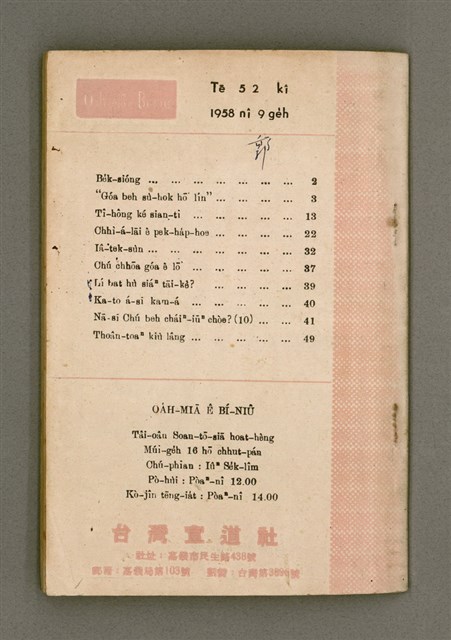 Tē 5 2 kî
1958 nî 9 ge̍h
郭
Be̍k-sióng ... ... ... ... ... ... ... 2
"Góa beh sù-hok hō͘ lín" ... ... ... ... 3
Tî-hông ké sian-ti ... ... ... ... ... 13
Chhi-á-lāi ê pek-ha̍p-hoe ... ... ... ... 22
Iâ-tek-sùn ... ... ... ... ... ... ... 32
Chú chhōa góa ê lō͘ ... ... ... ... ... 37
Lí bat hù siáⁿ tāi-kè? ... ... ... ... 39
Ka-to á-si kau-á ... ... ... ... ... 40
Nā-si Chú beh cháiⁿ-iūⁿ chòe? (10) ... ... 41
Thoân-toaⁿ kiù lâng ... ... ... ... ... 49
OA̍H-MIĀ Ê BÍ-NIŪ
Tâi-oân Soan-tō-siā hoat-hêng
Múi-ge̍h 16 hō chhut-pán
Chú-phian : Iûⁿ Se̍k-lîm
Pò-hùi : Pòaⁿ-nî 12.00
Kò-jîn tēng-ia̍t : Pòaⁿ-nî 14.00
台灣宣道社
社址：嘉義市民生路438號
郵箱：嘉義局第103號 劃撥：台南第3895號